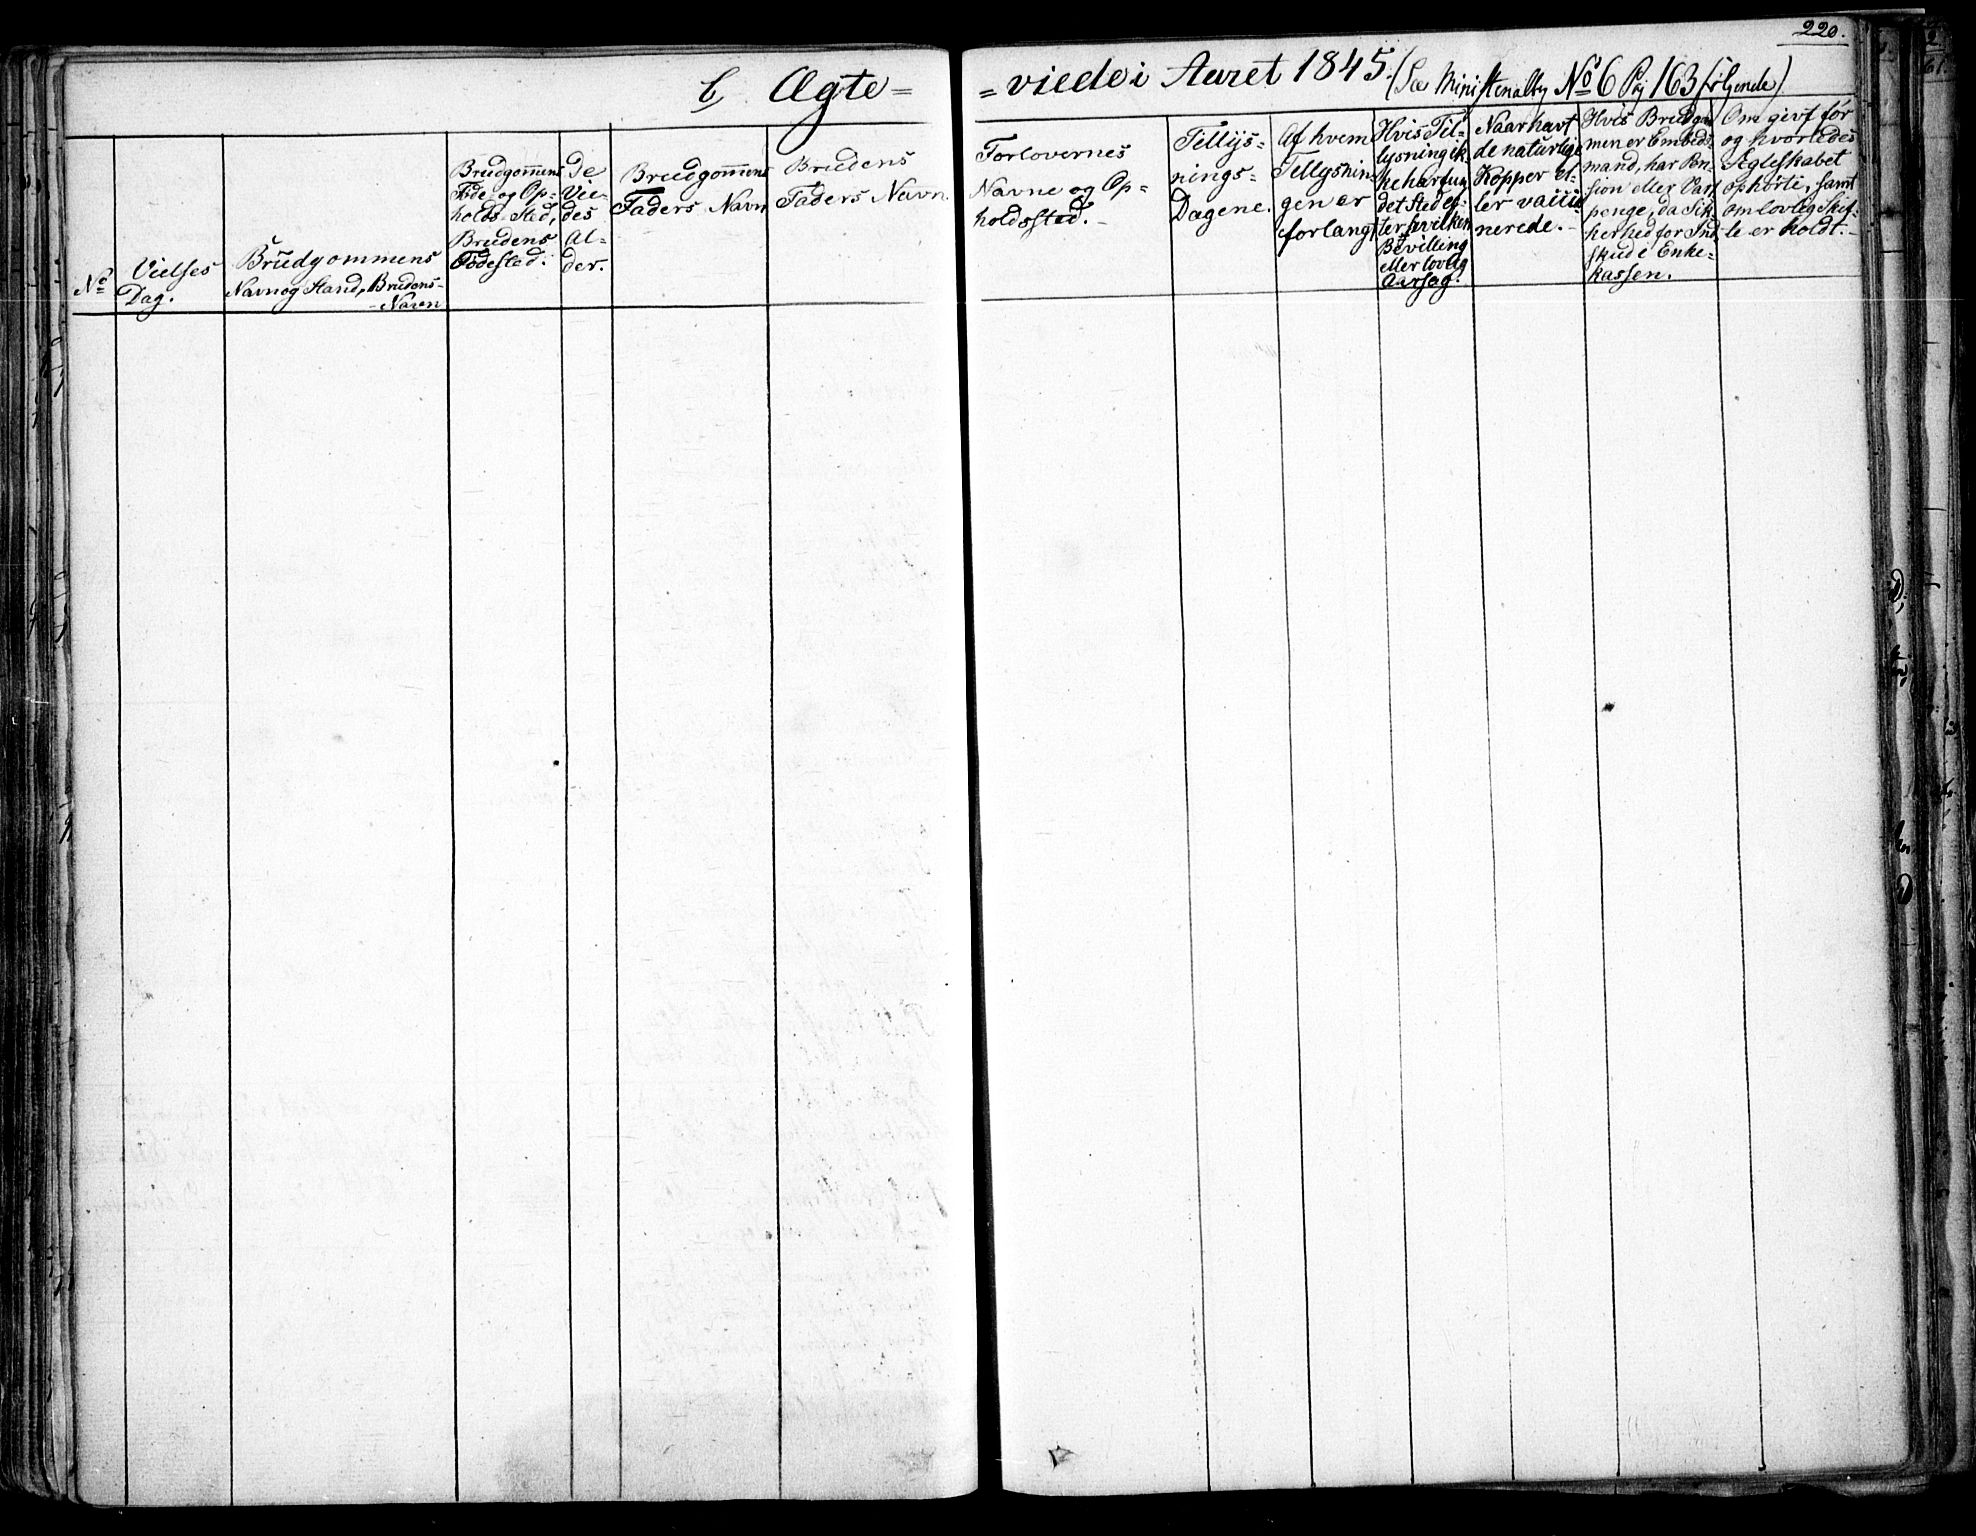 220.
b, Ægte=
=viede i Aaret 1845. (See Ministerialby No 6 Pag 163 følgende)
No
Vielses
Dag.
Brudgommens
Navn og Stand, Brudens
- Navn
Brudgommens
Føde- og Op-
holds Sted,
Brudens
Fødested.
De
Vie-
des
Al-
der.
Brudgommens
Faders Navn
Brudens
Faders Navn.
Forlovernes
Navne og Op=
holdssted. -
Tillys=
nings=
Dagene.
Af hvem
Tillysnin-
gen er
forlangt
Hvis Til-
lysning ik-
ke har fun
det Sted ef-
ter hvilken
Bevilling
eller lovlig
Aarsag.
Naar havt
de naturlige
Kopper el-
ler vacci-
nerede. -
Hvis Brudgom
men er Embeds-
mand, har Pen-
sion eller Vart
penge, da Sik-
kerhed for Ind
skud i Enke-
kassen.
Om givt før
og hvorledes
Ægteskabet
ophørte, samt
om lovlig Skif-
te er holdt. -